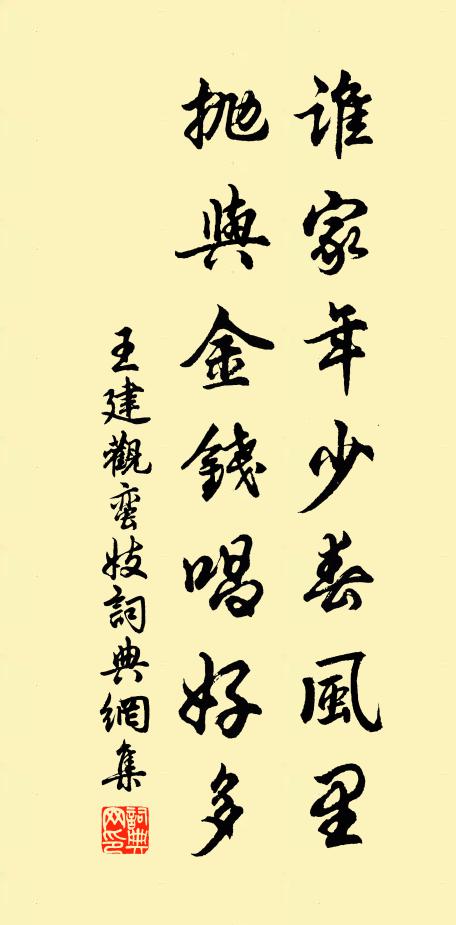 誰家年少春風里
抛與金錢唱好多
王建觀蠻妓詞典網集
詞典網印